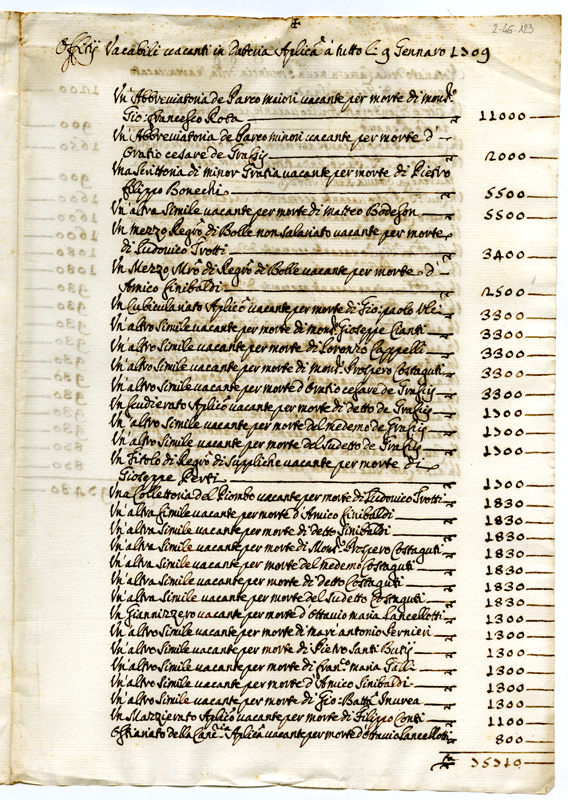 ✝
2-46-123
Offitij Vacabili vacanti in Dateria Aplicã à tutto li 9 Gennaro 1709
Un Abbreviatoria de Parco maiori vacante per morte di monsr
Gio: Francesco Rota 11000
Un Abbreviatoria de Parco minori vacante per morte d'
Oratio cesare de Grassij 2000
Una scrittoria di minor Gratia vacante per morte di Pietro
Filippo Bonechi 5500
Un'altra simile vacante per morte di Matteo Bodeson 5500
Un mezzo Regro di Bolle non salariato vacante per morte
di Ludovico Trotti 3400
Un Mezzo Mro di Regro di Bolle vacante per morte d'
Amico Sinibaldi 2500
Un Cubiculariato Aplico vacante per morte di Gio: paolo 3300
Un'altro simile vacante per morte di monsr Gioseppe Cianti 3300
Un'altro simile vacante per morte di Lorenzo Cappelli 3300
Un'altro simile vacante per morte di monsr Prospero Costaguti 3300
Un'altro simile vacante per morte d'Oratio cesare de Grassij 3300
Un Scudierato Aplico vacante per morte di detto de Grassij 1700
Un'altro simile vacante per morte del medemo de Grassij 1700
Un'altro simile vacante per morte del sudetto de Grassij 1700
Un Titolo di Regro di suppliche vacante per morte di
Gioseppe Perti 1700
Una Collettoria del Piombo vacante per morte di Ludovico Trotti 1830
Un'altra simile vacante per morte d'Amico Sinibaldi 1830
Un'altra simile vacante per morte di detto Sinibaldi 1830
Un'altra simile vacante per morte di Monsr Prospero Costaguti 1830
Un'altra simile vacante per morte del medemo Costaguti 1830
Un'altra simile vacante per morte di detto Costaguti 1830
Un'altra simile vacante per morte del sudetto Costaguti 1830
Un Giannizzero vacante per morte d'Ottavio maria Lancellotti 1300
Un'altro simile vacante per morte di marc'antonio Pernieri 1300
Un'altro simile vacante per morte di Pietro Santi Butij 1300
Un'altro simile vacante per morte di Franco maria Galli 1300
Un'altro simile vacante per morte d'Amico Sinibaldi 1300
Un'altro simile vacante per morte di Gio: Batta Invrea 1300
Un Mazzierato Aplico vacante per morte di Filippo Conti 1100
Ostiariato della Cancra Aplicã vacante per morte d'Ottavio Lancellotti 800